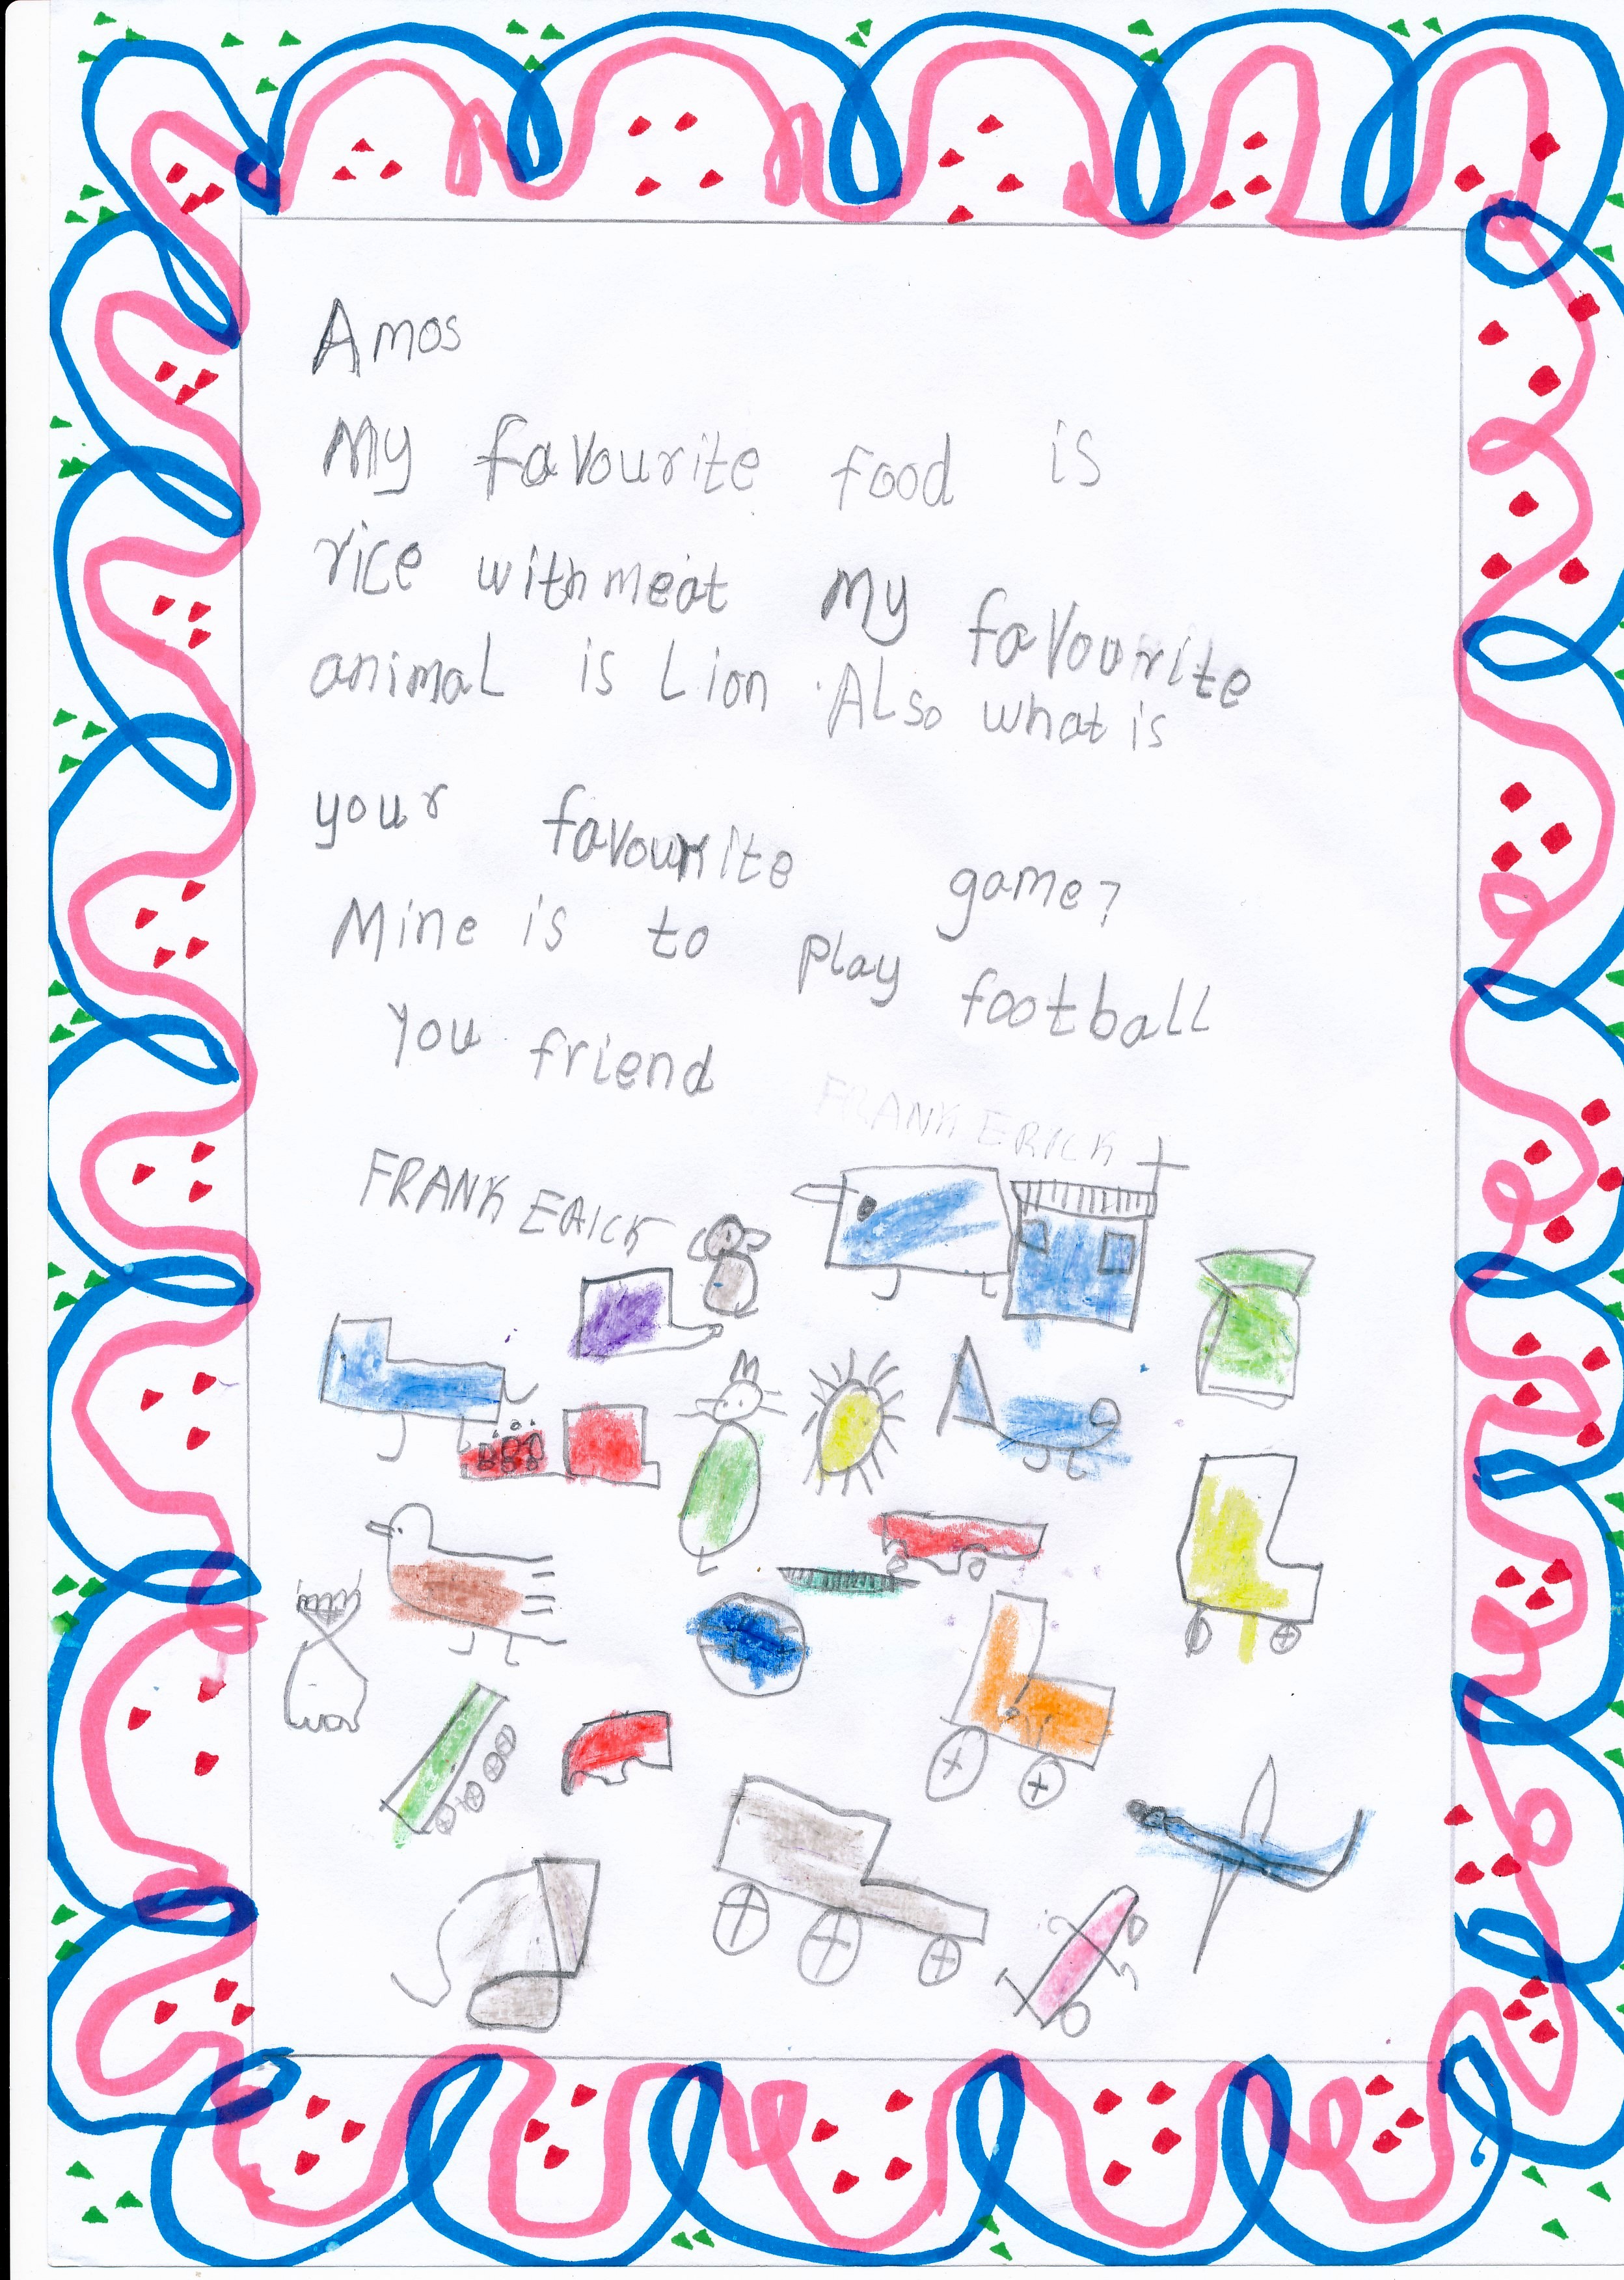 Amos
My favourite food is
rice with meat My favourite
animal is Lion . Also what is
your favourite game?
Mine is to play football
you friend
FRANK ERICK
FRANK ERICK